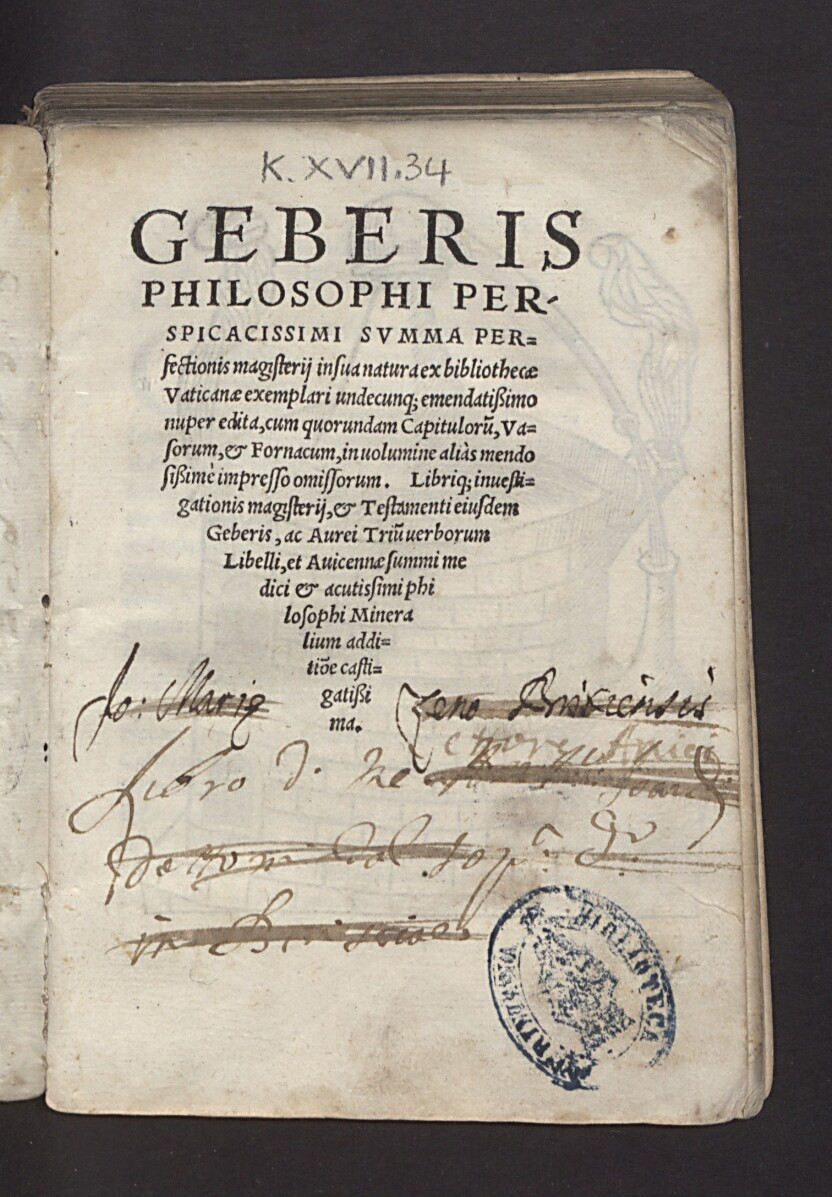 K. XVII.34
GEBERIS
PHILOSOPHI PER-
SPICACISSIMI SVMMA PER=
fectionis magisterij in sua natura ex bibliothecæ
Vaticanæ exemplari undecunq; emendatißimo
nuper edita, cum quorundam Capitulorũ, Va=
sorum, & Fornacum, in uolumine aliàs mendo
sißimè impresso omissorum. Libriq; inuesti=
gationis magisterij, & Testamenti eiusdem
Geberis, ac Aurei Triũ uerborum
Libelli, et Auicennæ summi me
dici & acutissimi phi
losophi Minera
lium addi=
tiõe casti=
gatißi
ma.
Jo: Mariæ Zeno Brixiensis
Libro d.
in
BIBLIOTECA